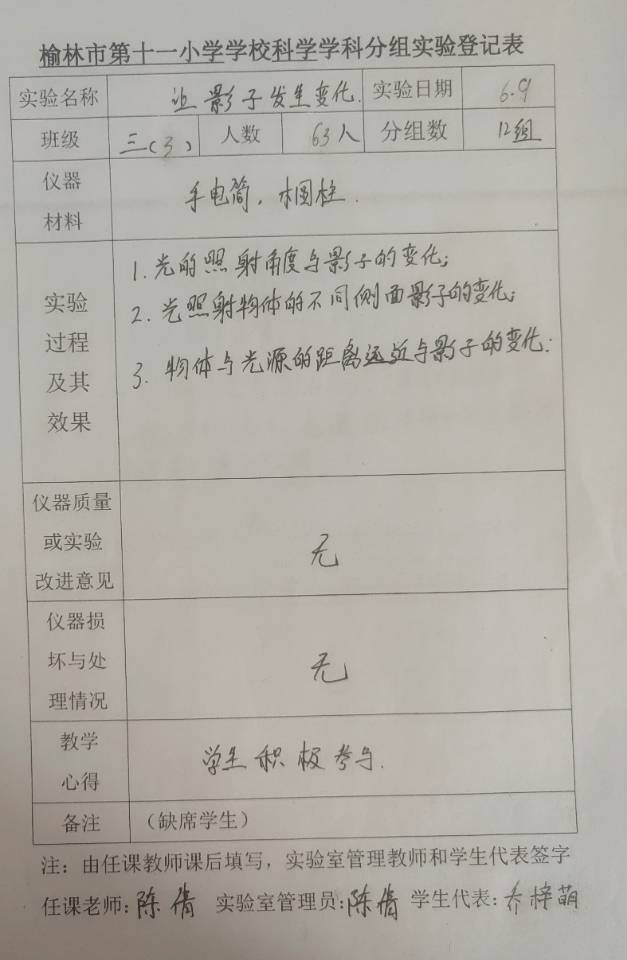 榆林市第十一小学学校科学学科分组实验登记表
实验名称 让影子发生变化. 实验日期 6.9
班级 三(3) 人数 63人 分组数 12组
仪器
材料
手电筒, 木圆柱.
实验
过程
及其
效果
1.光的照射角度与影子的变化;
2.光照射物体的不同侧面影子的变化;
3.物体与光源的距离远近与影子的变化:
仪器质量
或实验
改进意见
无
仪器损
坏与处
理情况
无
教学
心得
学生积极参与.
备注 (缺席学生)
注:由任课教师课后填写,实验室管理教师和学生代表签字
任课老师:陈倩 实验室管理员:陈倩 学生代表:乔梓萌